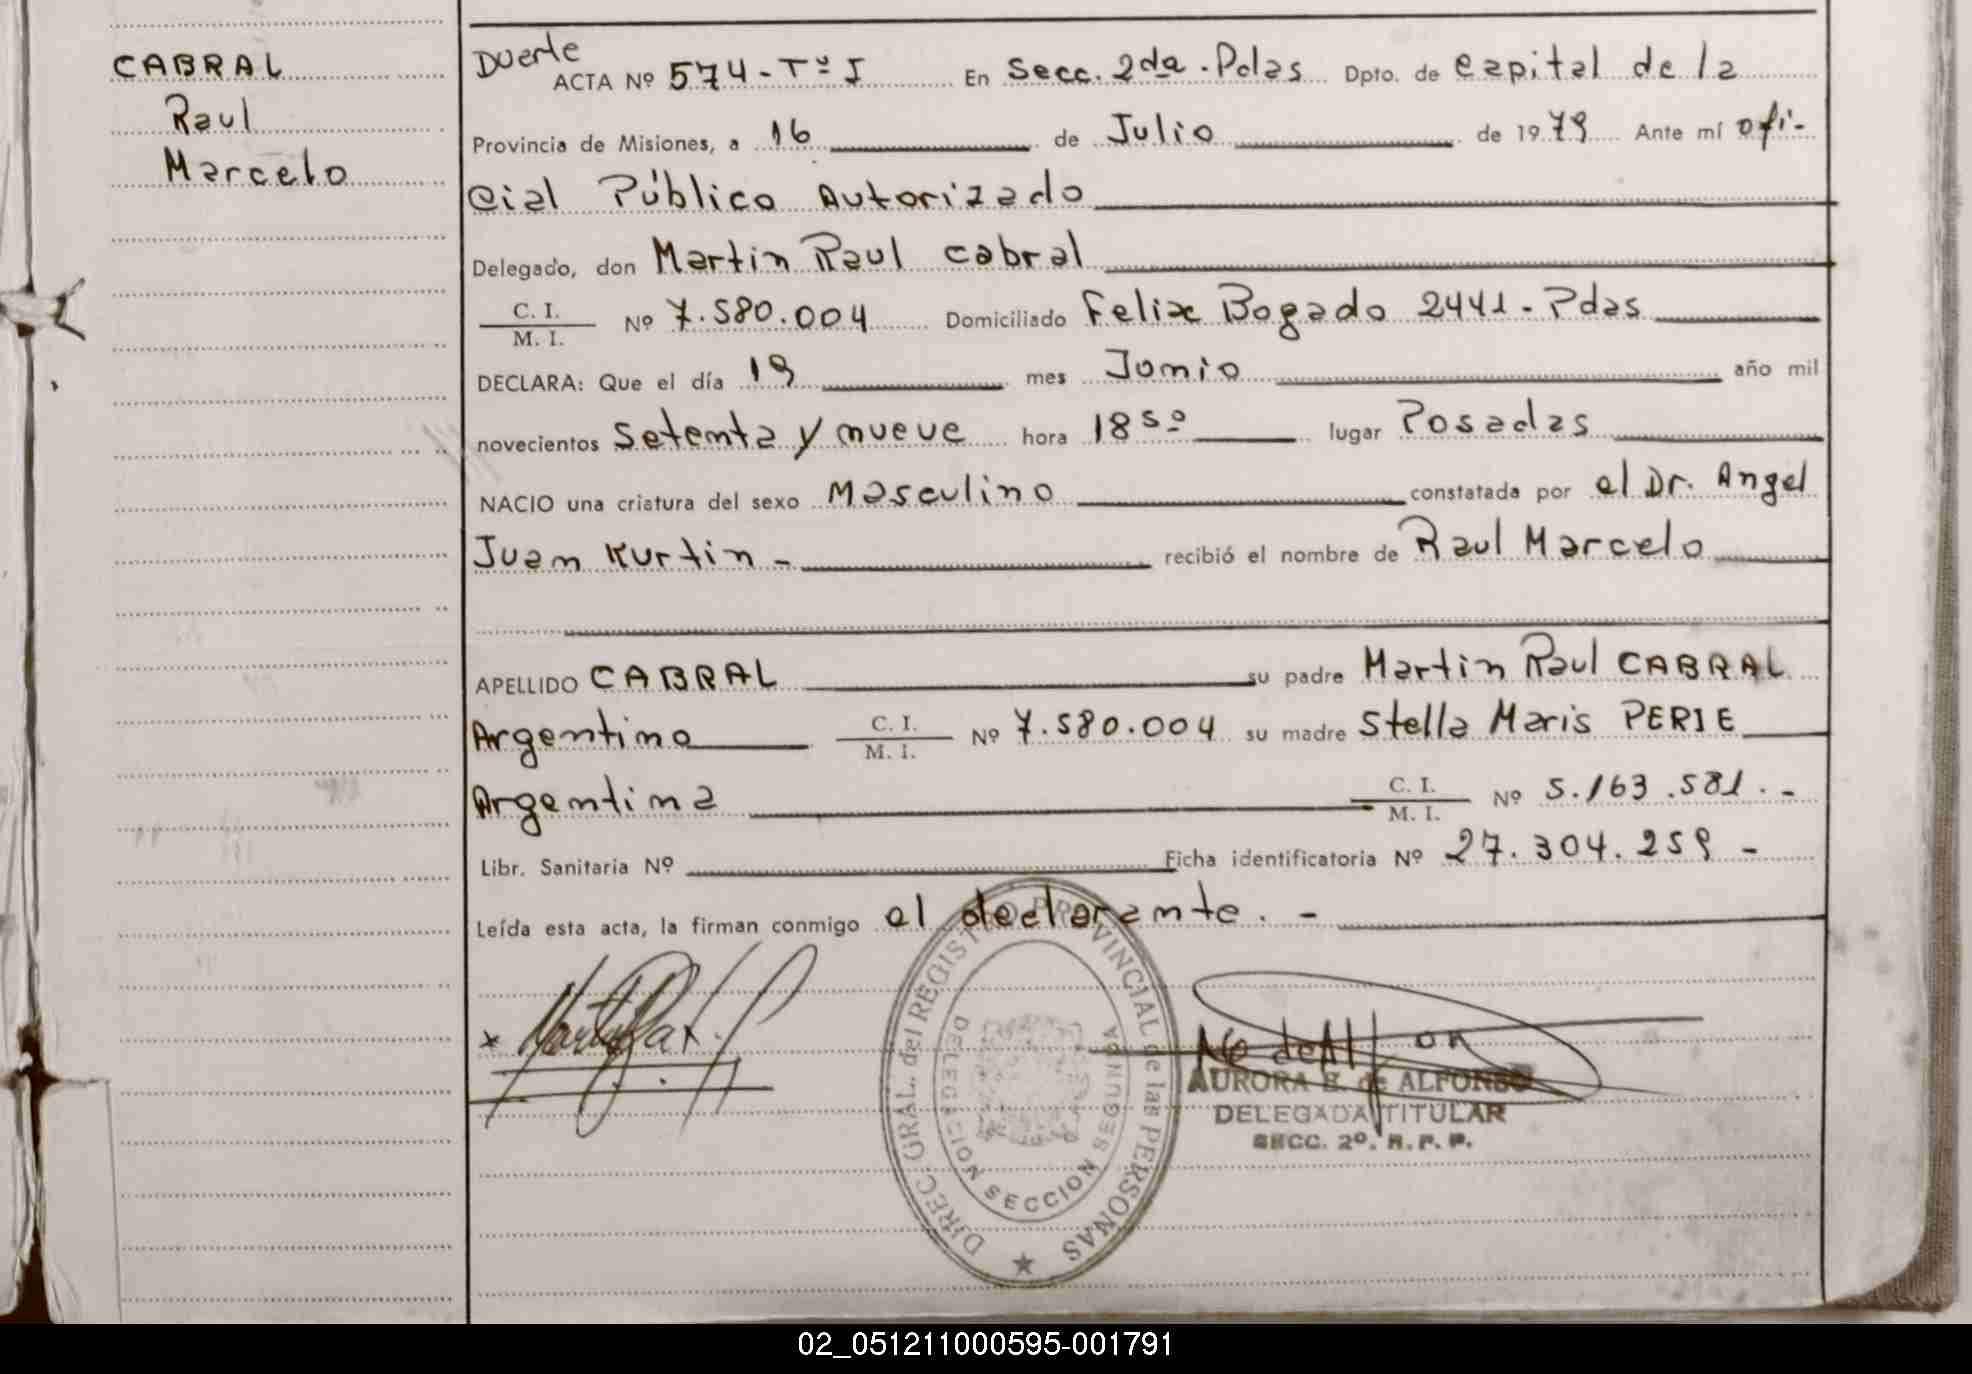 CABRAL
Raul
Marcelo
Duerte
ACTA Nº 574 - Tº I En Secc. 2da. Pdas Dpto. de Capital de la
Provincia de Misiones, a 16 de Julio de 1979 Ante mí ofi-
cial Público Autorizado
Delegado, don Martin Raul Cabral
C. I.
M. I. Nº 7.580.004 Domiciliado Felix Bogado 2441 - Pdas
DECLARA: Que el día 19 mes Junio año mil
novecientos Setenta y nueve hora 18 50 lugar Posadas
NACIO una criatura del sexo Masculino constatada por el Dr. Angel
Juan Kurtin - recibió el nombre de Raul Marcelo
APELLIDO CABRAL su padre Martin Raul CABRAL
Argentino C. I. M. I. Nº 7.580.004 su madre Stella Maris PERIE
Argentina C. I. M. I. Nº 5.163.581.-
Libr. Sanitaria Nº Ficha identificatoria Nº 27.304.259 -
Leída esta acta, la firman conmigo el declarante. -
DIREC. GRAL. del REGISTRO PROVINCIAL de las PERSONAS
DELEGACION SECCION SEGUNDA
AURORA E. de ALFONSO
DELEGADA TITULAR
SECC. 2º. R. P. P.
02_051211000595-001791